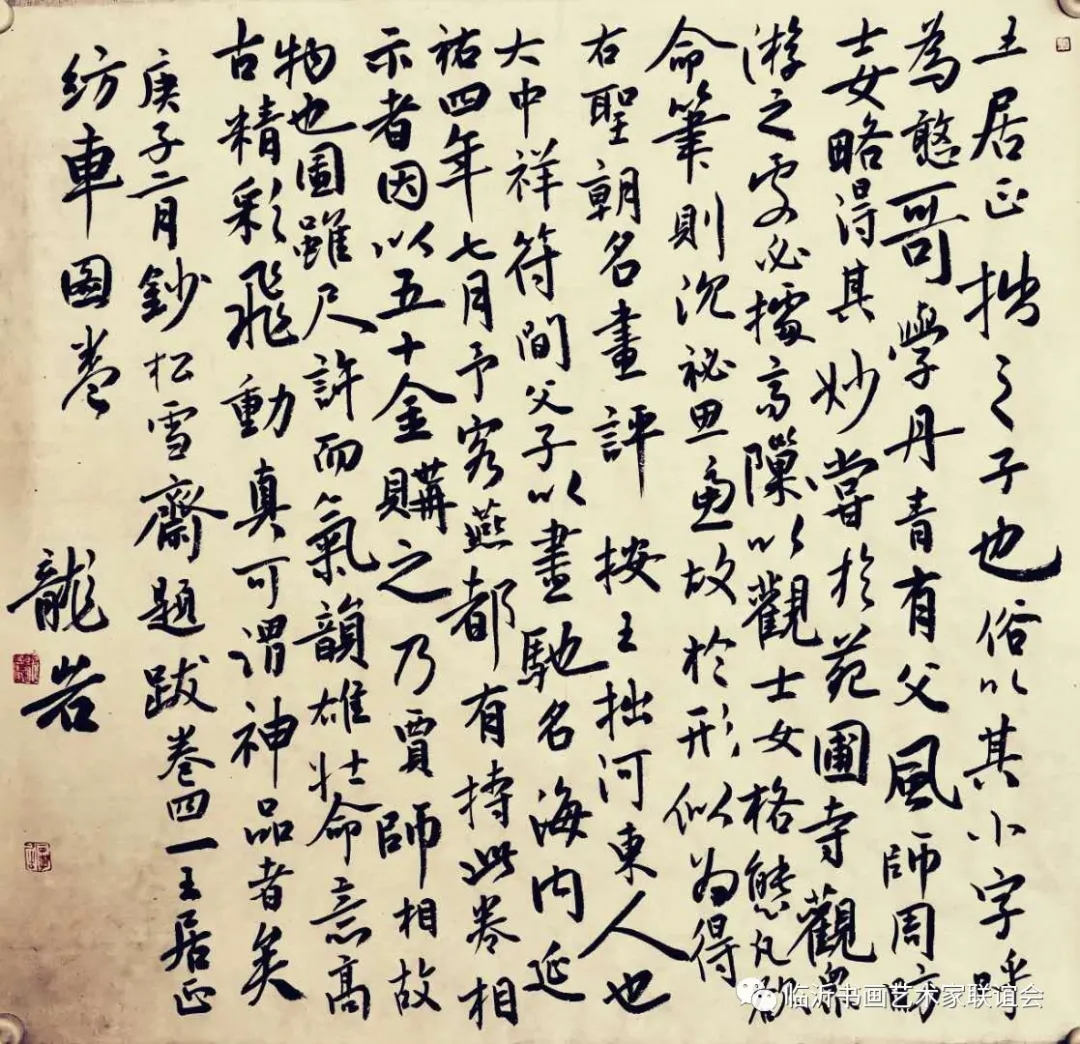 王居正拙之子也俗以其小字呼
為憨哥學丹青有父風師周昉
士女略得其妙嘗於苑圃寺觀
游之處必據高隙以觀士女格態凡欲
命筆則沉祕思慮故於形似為得
右聖朝名畫評 按王拙河東人也
大中祥符間父子以畫馳名海内延
祐四年七月予客燕都有持此卷相
示者因以五十金購之乃賈師相故
物也圖雖尺許而氣韻雄壯命意高
古精彩飛動真可謂神品者矣
庚子二月鈔松雪齋題跋卷四一王居正
紡車圖卷
龍岩
临沂书画艺术家联谊会